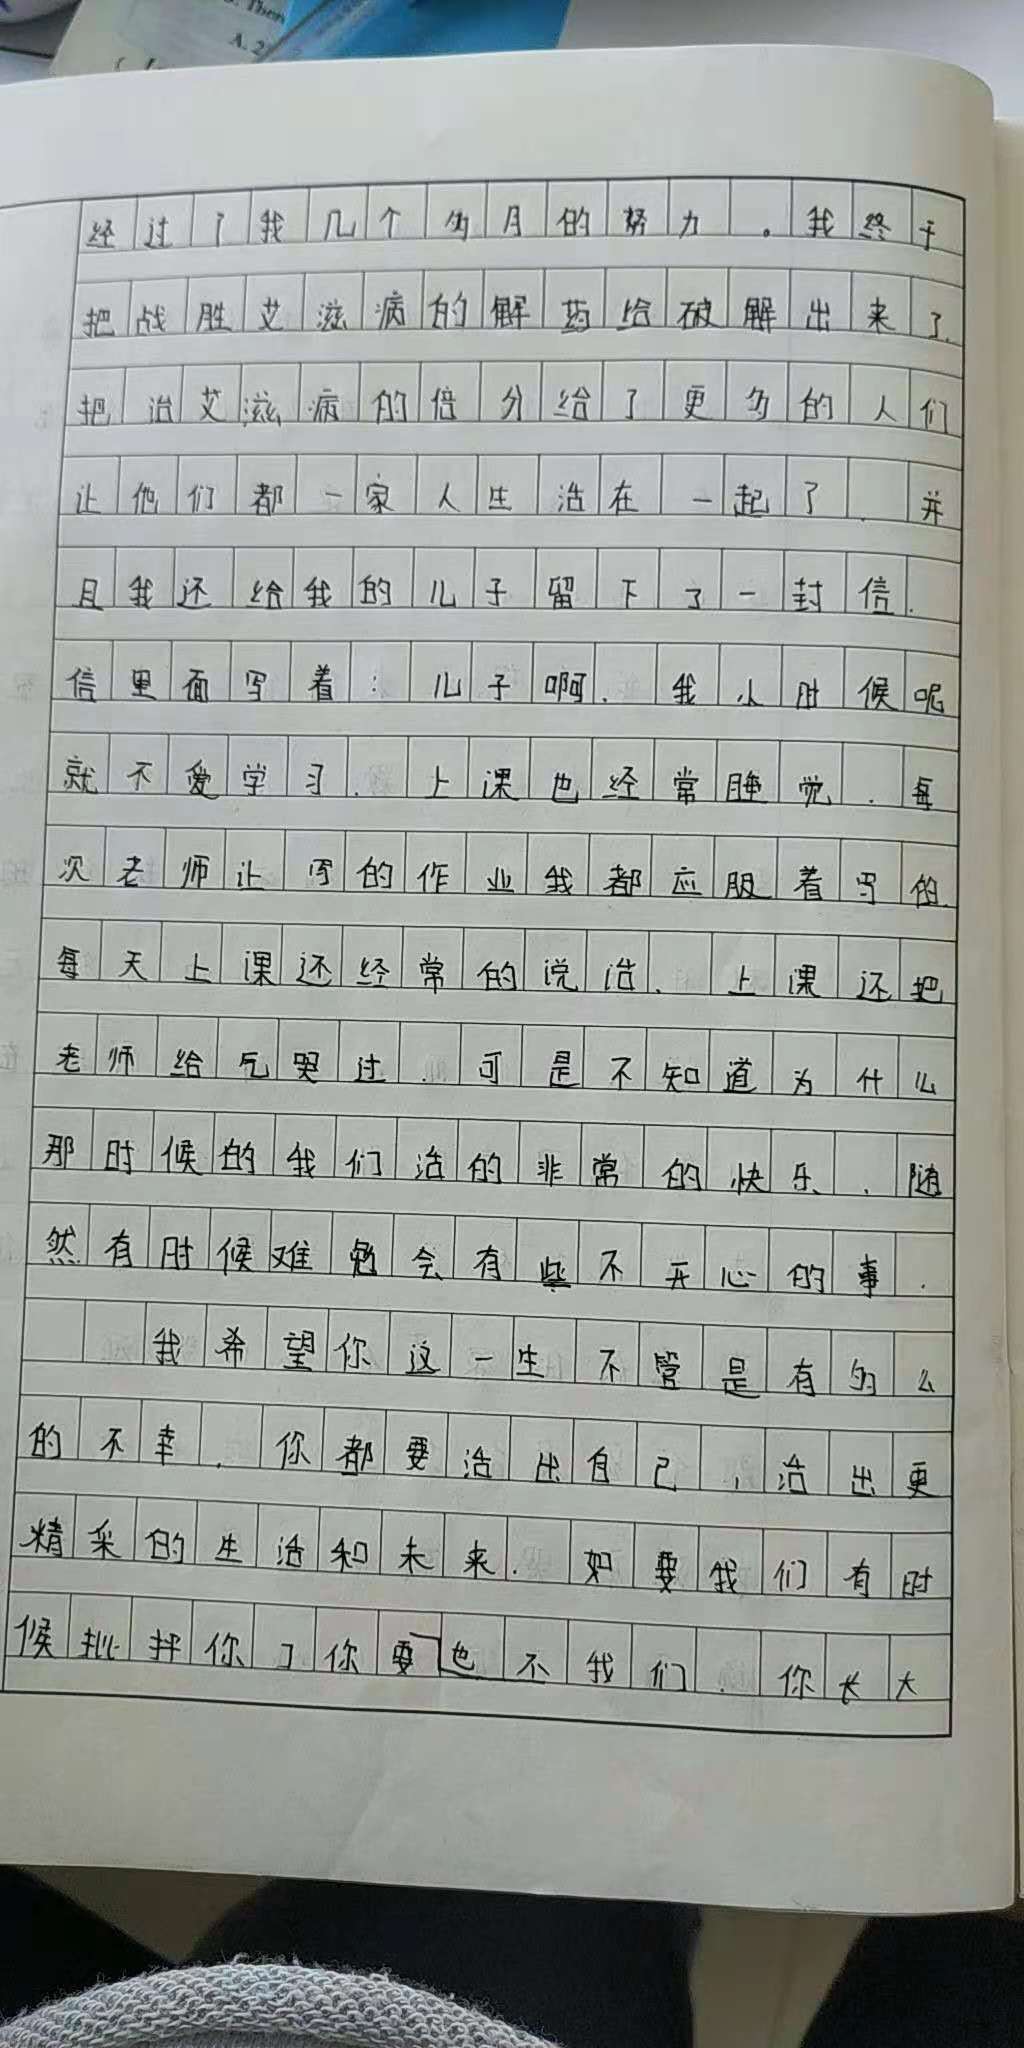 Then
A. 2
经过了我几个多月的努力。我终于
把战胜艾滋病的解药给破解出来了.
把治艾滋病的倍分给了更多的人们
让他们都一家人生活在一起了.并
且我还给我的儿子留下了一封信.
信里面写着:儿子啊.我小时候呢
就不爱学习.上课也经常睡觉.每
次老师让写的作业我都应服着写的.
每天上课还经常的说话.上课还把
老师给气哭过.可是不知道为什么
那时候的我们活的非常的快乐.随
然有时候难勉会有些不开心的事.
我希望你这一生不管是有多么
的不幸.你都要活出自己,活出更
精采的生活和未来.如要我们有时
候批抨你了你要也不我们.你长大